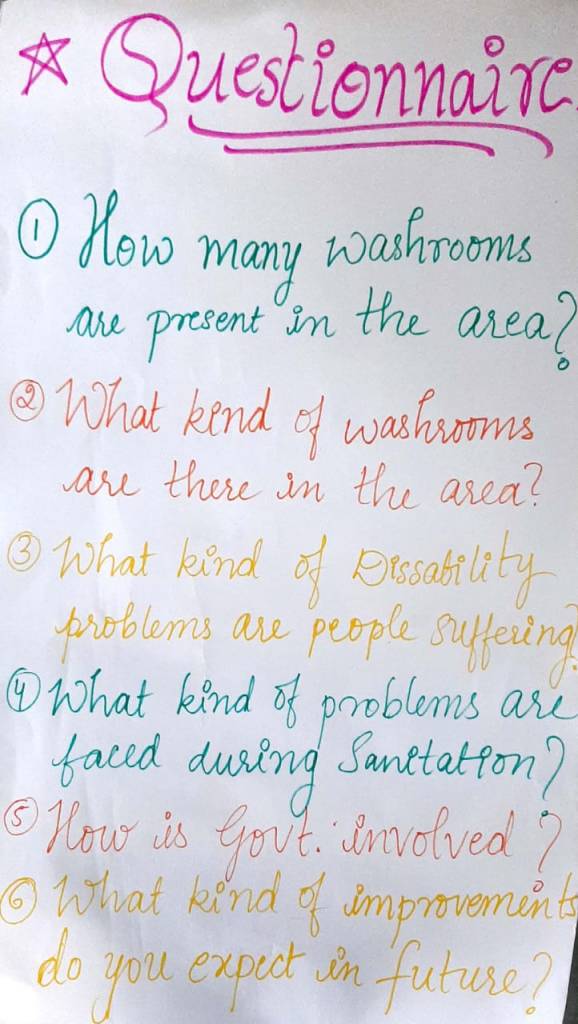 ☆ Questionnaire
① How many washrooms
are present in the area?
② What kind of washrooms
are there in the area?
③ What kind of Dissability
problems are people suffering?
④ What kind of problems are
faced during Sanitation?
⑤ How is Govt. involved?
⑥ What kind of improvements
do you expect in future?